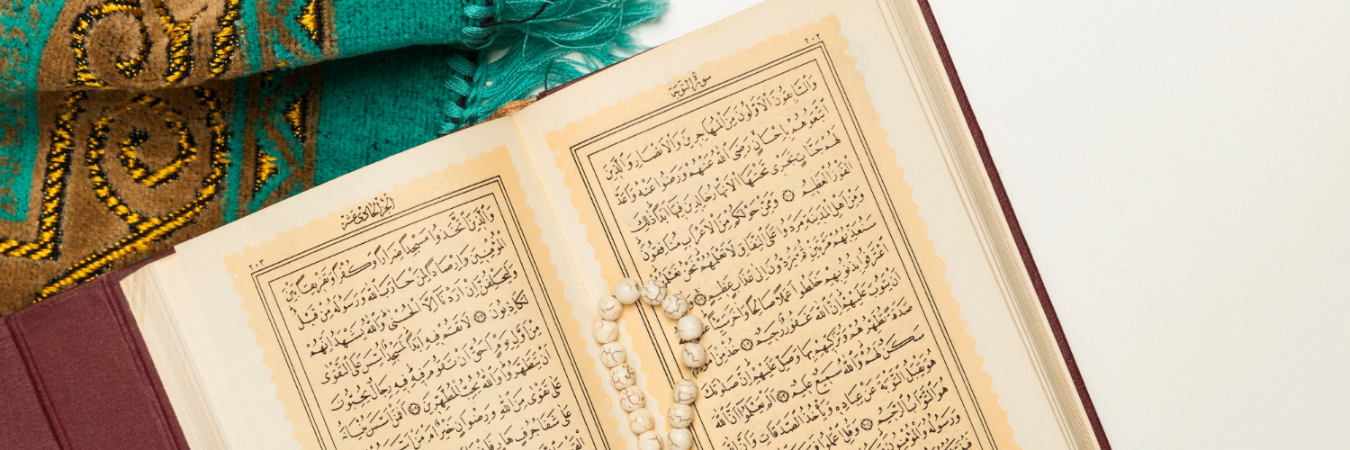 ٢٠٢
سورة التوبة
وَالسَّابِقُونَ الْاَوَّلُونَ مِنَ الْمُهَاجِرِينَ وَالْاَنْصَارِ وَالَّذِينَ
اتَّبَعُوهُمْ بِاِحْسَانٍ رَضِيَ اللّٰهُ عَنْهُمْ وَرَضُوا عَنْهُ وَاَعَدَّ
لَهُمْ جَنَّاتٍ تَجْرِي تَحْتَهَا الْاَنْهَارُ خَالِدِينَ فِيهَا اَبَدًا ذٰلِكَ
الْفَوْزُ الْعَظِيمُ وَمِمَّنْ حَوْلَكُمْ مِنَ الْاَعْرَابِ مُنَافِقُونَ
وَمِنْ اَهْلِ الْمَدِينَةِ مَرَدُوا عَلَى النِّفَاقِ لَا تَعْلَمُهُمْ نَحْنُ نَعْلَمُهُمْ
سَنُعَذِّبُهُمْ مَرَّتَيْنِ ثُمَّ يُرَدُّونَ اِلٰى عَذَابٍ عَظِيمٍ
اعْتَرَفُوا بِذُنُوبِهِمْ خَلَطُوا عَمَلًا صَالِحًا وَاٰخَرَ سَيِّئًا
اَنْ يَتُوبَ عَلَيْهِمْ اِنَّ اللّٰهَ غَفُورٌ رَحِيمٌ خُذْ مِنْ
صَدَقَةً تُطَهِّرُهُمْ وَتُزَكِّيهِمْ بِهَا وَصَلِّ عَلَيْهِمْ اِنَّ صَلٰوتَكَ
سَكَنٌ لَهُمْ وَاللّٰهُ سَمِيعٌ عَلِيمٌ اَلَمْ يَعْلَمُوا اَنَّ اللّٰهَ
هُوَ يَقْبَلُ التَّوْبَةَ عَنْ عِبَادِهِ وَيَأْخُذُ الصَّدَقَاتِ وَاَنَّ اللّٰهَ
هُوَ التَّوَّابُ الرَّحِيمُ وَقُلِ اعْمَلُوا
وَرَسُولُهُ وَالْمُؤْمِنُونَ
٢٠٣
الجزء الحادى عشر
وَالَّذِينَ اتَّخَذُوا مَسْجِدًا ضِرَارًا وَكُفْرًا وَتَفْرِيقًا بَيْنَ
الْمُؤْمِنِينَ وَاِرْصَادًا لِمَنْ حَارَبَ اللّٰهَ وَرَسُولَهُ مِنْ قَبْلُ
وَلَيَحْلِفُنَّ اِنْ اَرَدْنَا اِلَّا الْحُسْنٰى وَاللّٰهُ يَشْهَدُ اِنَّهُمْ
لَكَاذِبُونَ لَا تَقُمْ فِيهِ اَبَدًا لَمَسْجِدٌ اُسِّسَ عَلَى التَّقْوٰى
مِنْ اَوَّلِ يَوْمٍ اَحَقُّ اَنْ تَقُومَ فِيهِ فِيهِ رِجَالٌ يُحِبُّونَ
اَنْ يَتَطَهَّرُوا وَاللّٰهُ يُحِبُّ الْمُطَّهِّرِينَ اَفَمَنْ اَسَّسَ بُنْيَانَهُ
عَلٰى تَقْوٰى مِنَ اللّٰهِ وَرِضْوَانٍ خَيْرٌ اَمْ مَنْ اَسَّسَ
عَلٰى شَفَا جُرُفٍ هَارٍ فَانْهَارَ